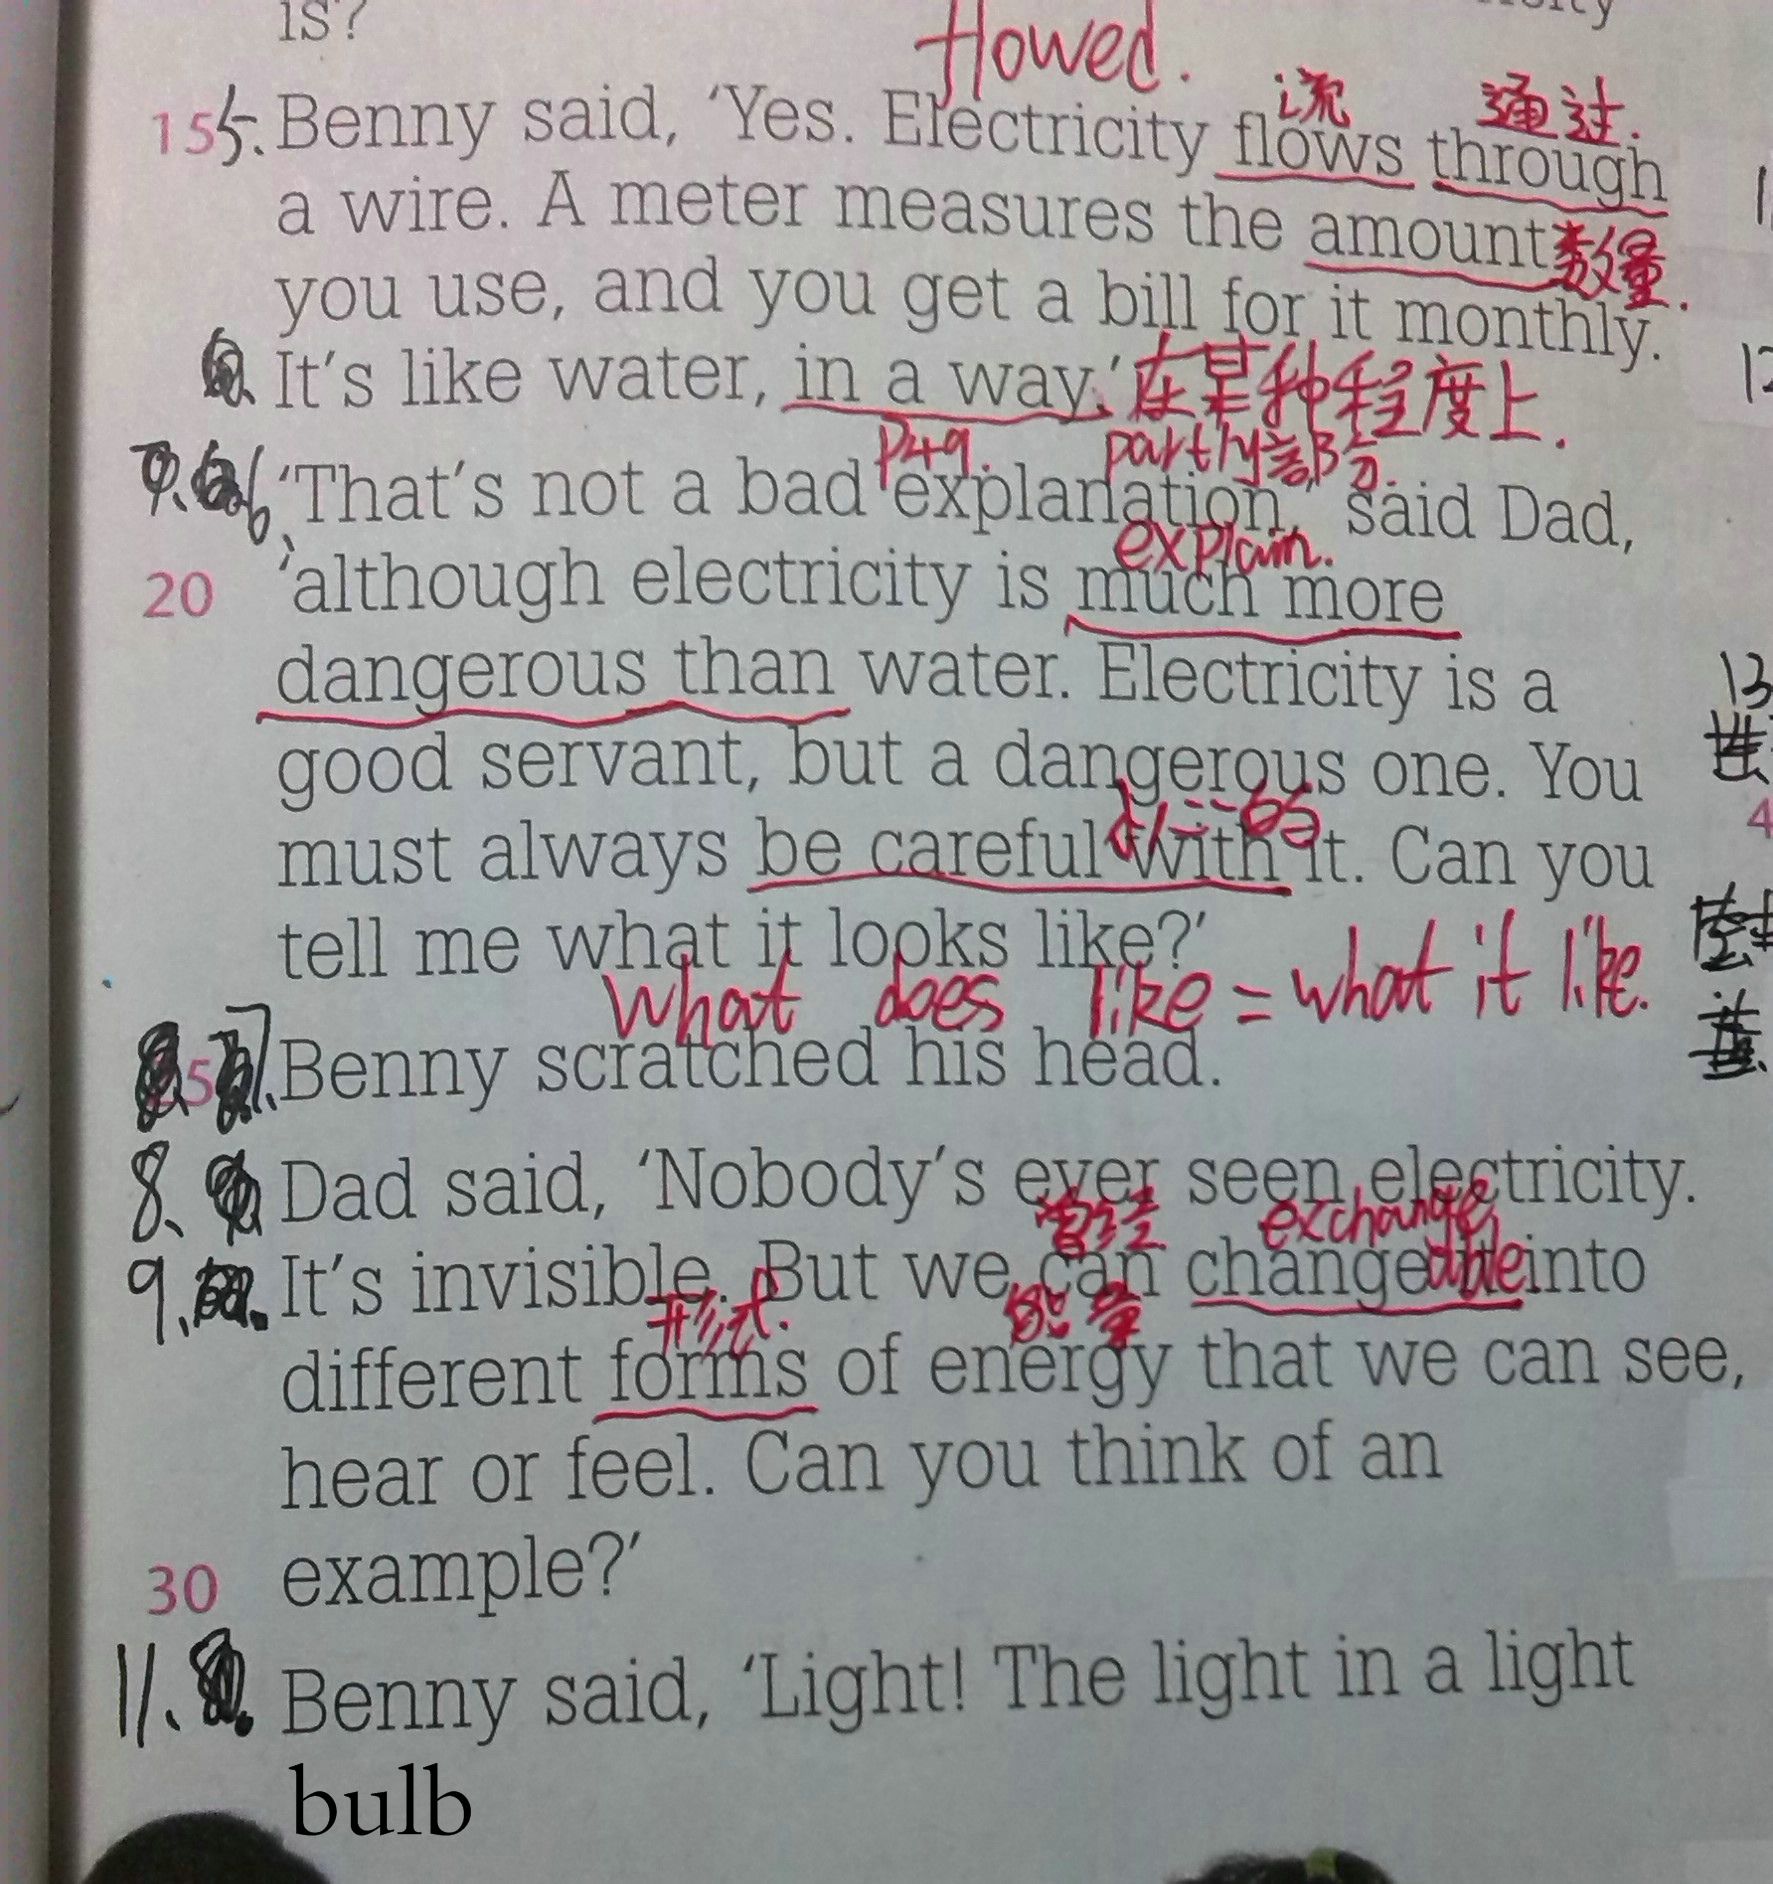 is?
flowed.
流 通过.
15 5. Benny said, ‘Yes. Electricity flows through
a wire. A meter measures the amount 数量.
you use, and you get a bill for it monthly.
It’s like water, in a way.’ 在某种程度上.
P49. partly 部分.
6 ‘That’s not a bad explanation,’ said Dad,
explain.
20 ‘although electricity is much more
dangerous than water. Electricity is a
good servant, but a dangerous one. You
must always be careful with it. Can you
tell me what it looks like?’
what does like = what it like.
7. Benny scratched his head.
8. Dad said, ‘Nobody’s ever seen electricity.
曾经 exchange
9. It’s invisible. But we can change it into
形式. 能量
different forms of energy that we can see,
hear or feel. Can you think of an
30 example?’
11. Benny said, ‘Light! The light in a light
bulb